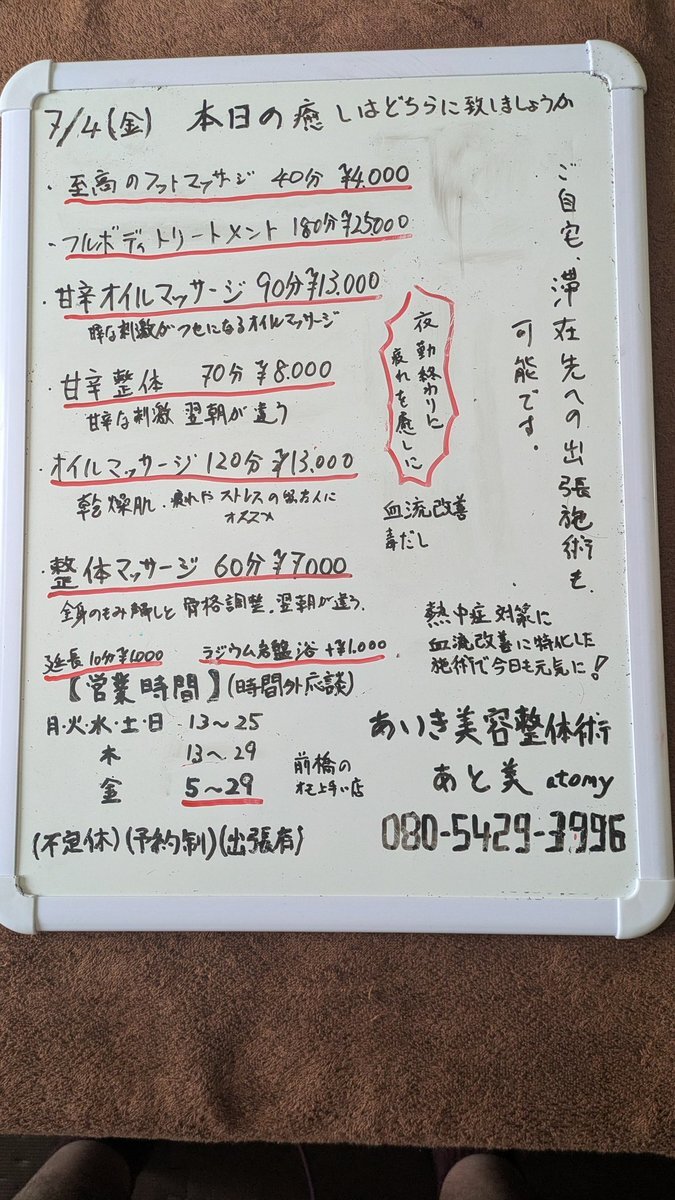 7/4(金) 本日の癒しはどちらに致しましょうか
・至高のフットマッサージ 40分 ¥4,000
・フルボディトリートメント 180分¥25000
・甘辛オイルマッサージ 90分¥13,000
粋な刺激がクセになるオイルマッサージ
・甘辛整体 70分 ¥8.000
甘辛な刺激 翌朝が違う
・オイルマッサージ 120分 ¥13,000
乾燥肌・疲れやストレスの
オススメ
・整体マッサージ 60分 ¥7000
全身のもみ解しと骨格調整。翌朝が違う。
延長10分¥1,000 ラジウム岩盤浴+¥1,000
【営業時間】(時間外応談)
月・火・水・土・日 13〜25
木 13〜29
金 5〜29
前橋の
上手い店
(不定休)(予約制)(出張有)
ご自宅、滞在先への出張施術も
可能です。
夜勤終わりに
疲れを癒しに
血流改善
毒だし
熱中症対策に
血流改善に特化した
施術で今日も元気に!
あいき美容整体術
あと美 atomy
080-5429-3996